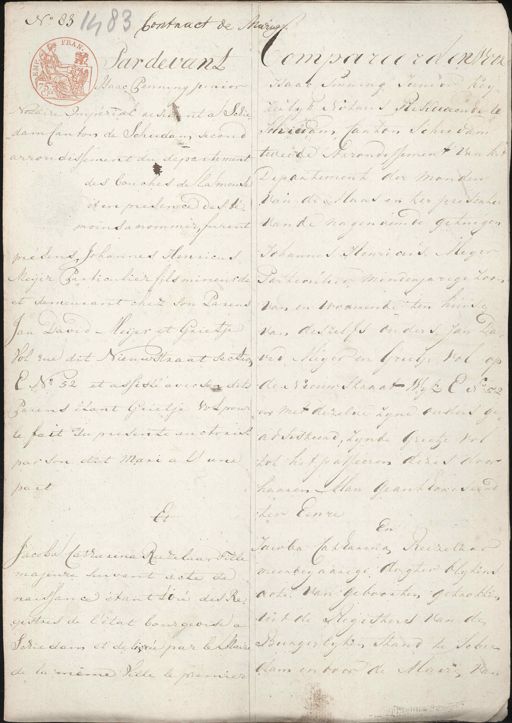 No 83 1483 Contract de Mariage
Pardevant
Isaac Penning junior
Notaire Imperial resident a Schie
dam Canton de Schiedam second
arrondissement du departement
des bouches de la meuse
et en presence des te
moins a nommer, furent
présens, Johannes Henricus
Meijer Particulier fils mineur de
et demeurant chez son Parens
Jan David Meijer et Grietje
Vol rue dit Nieuwstraat section
E No 52 et assisté avec ses dits
Parens étant Grietje Vol pour
le fait du presente autorisé
par son dit Mari a L'une
part
Et
Jacoba Catharina Reuzelaar fille
majeure suivant acte de
naissance étant tiré des Re
gistres de l'état bourgeois a
Schiedam et delivré par le Maire
de la même Ville le premier
Compareerden Voor
Isaac Penning Junior Key
zerlijk Notaris Resideerende te
Schiedam, Canton Schiedam
tweede Arrondissement van het
Departement der monden
van de Maas en ter presentie
van de nagenoemde getuigen
Johannes Henricus Meijer
Particulier, minderjarige Zoon
van en woonende ten huize
van deszelfs ouders, Jan Da
vid Meijer en Grietje Vol op
de Nieuwstraat Wijk E No 52
en met dezelve zyne ouders ge
adsisteerd, zynde Grietje Vol
tot het passeren dezes door
haaren Man geauthoriseerd
ter Eenre
En
Jacoba Catharina Reuzelaar
meerderjaarige dogter blykens
acte van geboorte, getrokken
uit de Registers van de
Burgerlyken Stand te Schie
dam en door de Maire van